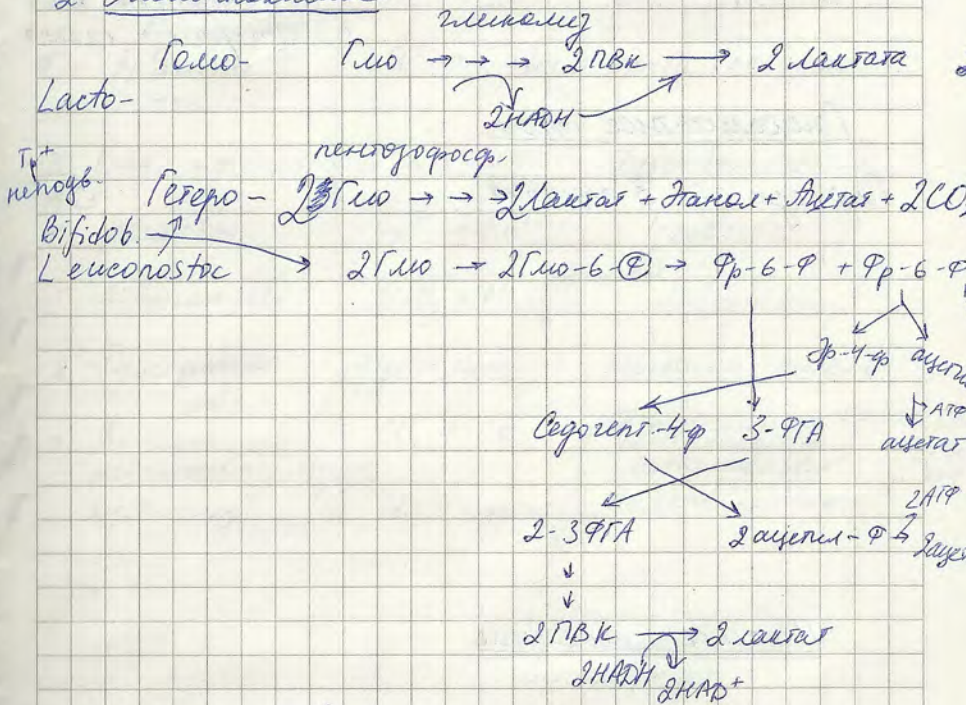 2.
гликолиз
Гомо- Глю → → → 2 ПВК → 2 Лактата
Lacto-
2НАДН
Гр+
неподв.
пентозофосф.
Гетеро- 2 Глю → → → 2 Лактат + Этанол + Ацетат + 2CO2
Bifidob.
Leuconostoc → 2 Глю → 2 Глю-6-Ф → Фр-6-Ф + Фр-6-Ф
Эр-4-ф
АТФ
Седогепт-4-ф 3-ФГА ацетат
2АТФ
2-3ФГА 2 ацетил-Ф →
2 ПВК → 2 лактат
2НАДН 2НАД+